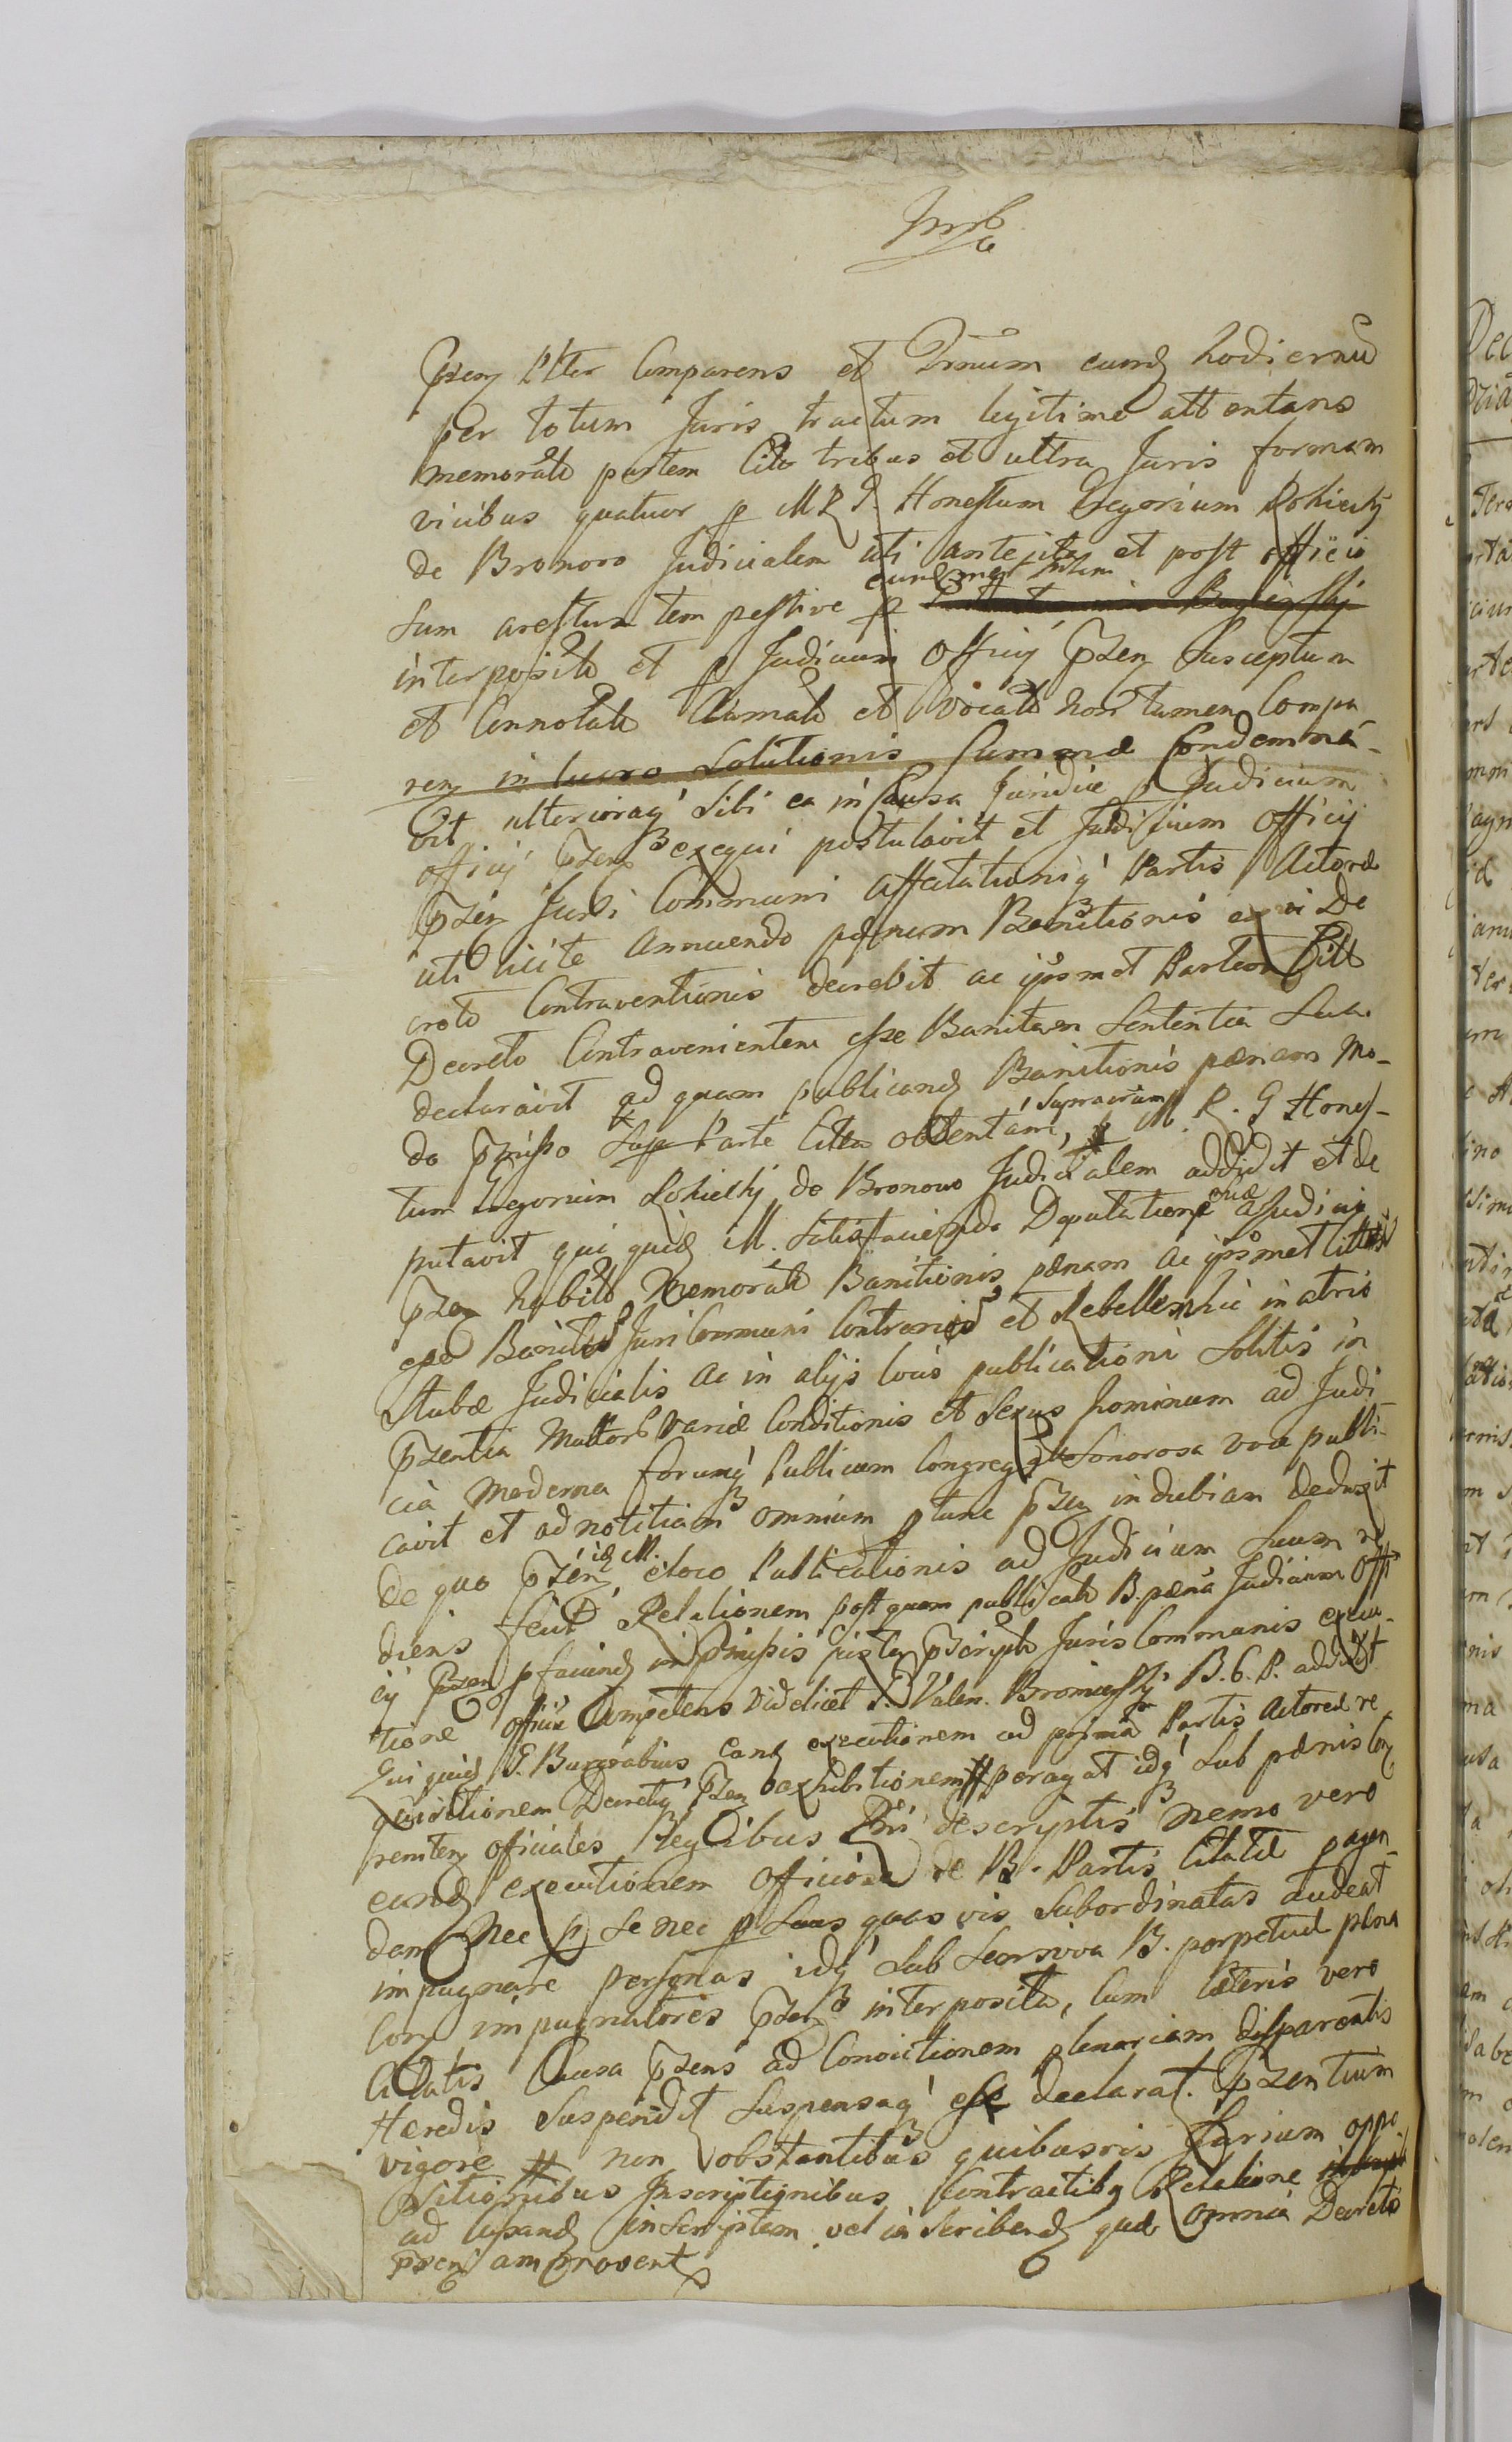 przen Rtter Comparens et Trnum eund hodiernu
per totum Juris tractum legitime attentans
memorato partem Cito tribus et ultra Juris formam
vicibus quatuor p M R G. Honestum Gregorium Rokicky
de Bronowo Judicialem uti ante ita et post officio
Sum arestum tempestive p eund met
interposito et p Judicium Officij przen Susceptum
et Connotato Clamato et Vocato non tamen Compa
ren in lucro Solutionis Summæ Condemna-
vit ulterioraq Sibi ea in Causa Juridice p Judicium
officij przens exequi postulavit et Judicium Officij
przen Juri Communi affectationiq Partis Actoreæ
uti licite annuendo pænam Banitionis ex vi De
creto Contraventionis decrevit ac ipsmet Partem Citt
Decreto Contravenientem esse Banitam Sententia Sua
declaravit ad quam publicand Banitionis pænam Mo-
do præmisso Supr Parte Citta obtentam, supracitam p M. R. G Hones-
tum Gregorium Rokicky de Bronowo Judicialem addidit et de
putavit qui quid M. Satisfaciendo Deputatione suæ a Judicio
przen habito Memorato Banitionis pænam ac ipsmet Citt
esse Banitos Juri Communi Contrarios et Rebelles hic in atrio
Stubæ Judicialis ac in alijs locis publicationi Solitis in
przentia Multorb Variæ Conditionis et Sexus hominum ad Judi
cia moderna forumq Publicum Congreg Sonorosa voce publi-
cavit et ad notitiam omnium ptunc przen indubiam deduxit
de quo przen id M. eloco Publicationis ad Judicium Suum re
diens fecit Relationem post quam publicato B. pæna Judicium Offi
cij przen p faciend in præmissis justa præscripto Juris Communis execu-
tione Officiu Competens Videlicet G. Valen. Bromierski B. G. P. addidit
Qui quid G. Burgrabius eand executionem ad primam Partis Actoreæ re
quisitionem Decretiq przen exhibitionem peragat idq Sub pænis con
renitem officiales Regnibus descriptis nemo vero
eand executionem officiosa de B. Partis Citatæ pagen
dam Nec p Se nec p Suas quasvis Subordinatas audeat
impugnare personas idq Sub Seorsiva B. perpetuæ pæna
Con impugnatores przen interposita, Cum Cæteris vero
Citatis Causa przens ad Convictionem plenariam disparentis
Hæredis Suspendit Suspensaq esse declarat. przentium
vigore non obstantibus quibusvis Parium oppo
sitionibus Inscriptionibus Contractibq Relatione
ad Cujusand inscriptam vel in scribend quæ omnia Decreto
przen improvent